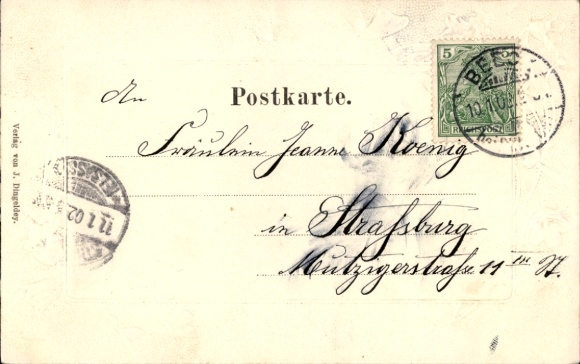 Postkarte.
An
Fräulein Jeanne Koenig
in Straßburg
Mutzigerstraße 11 III St.
Verlag von J. Dingeldey.
5
REICHSPOST